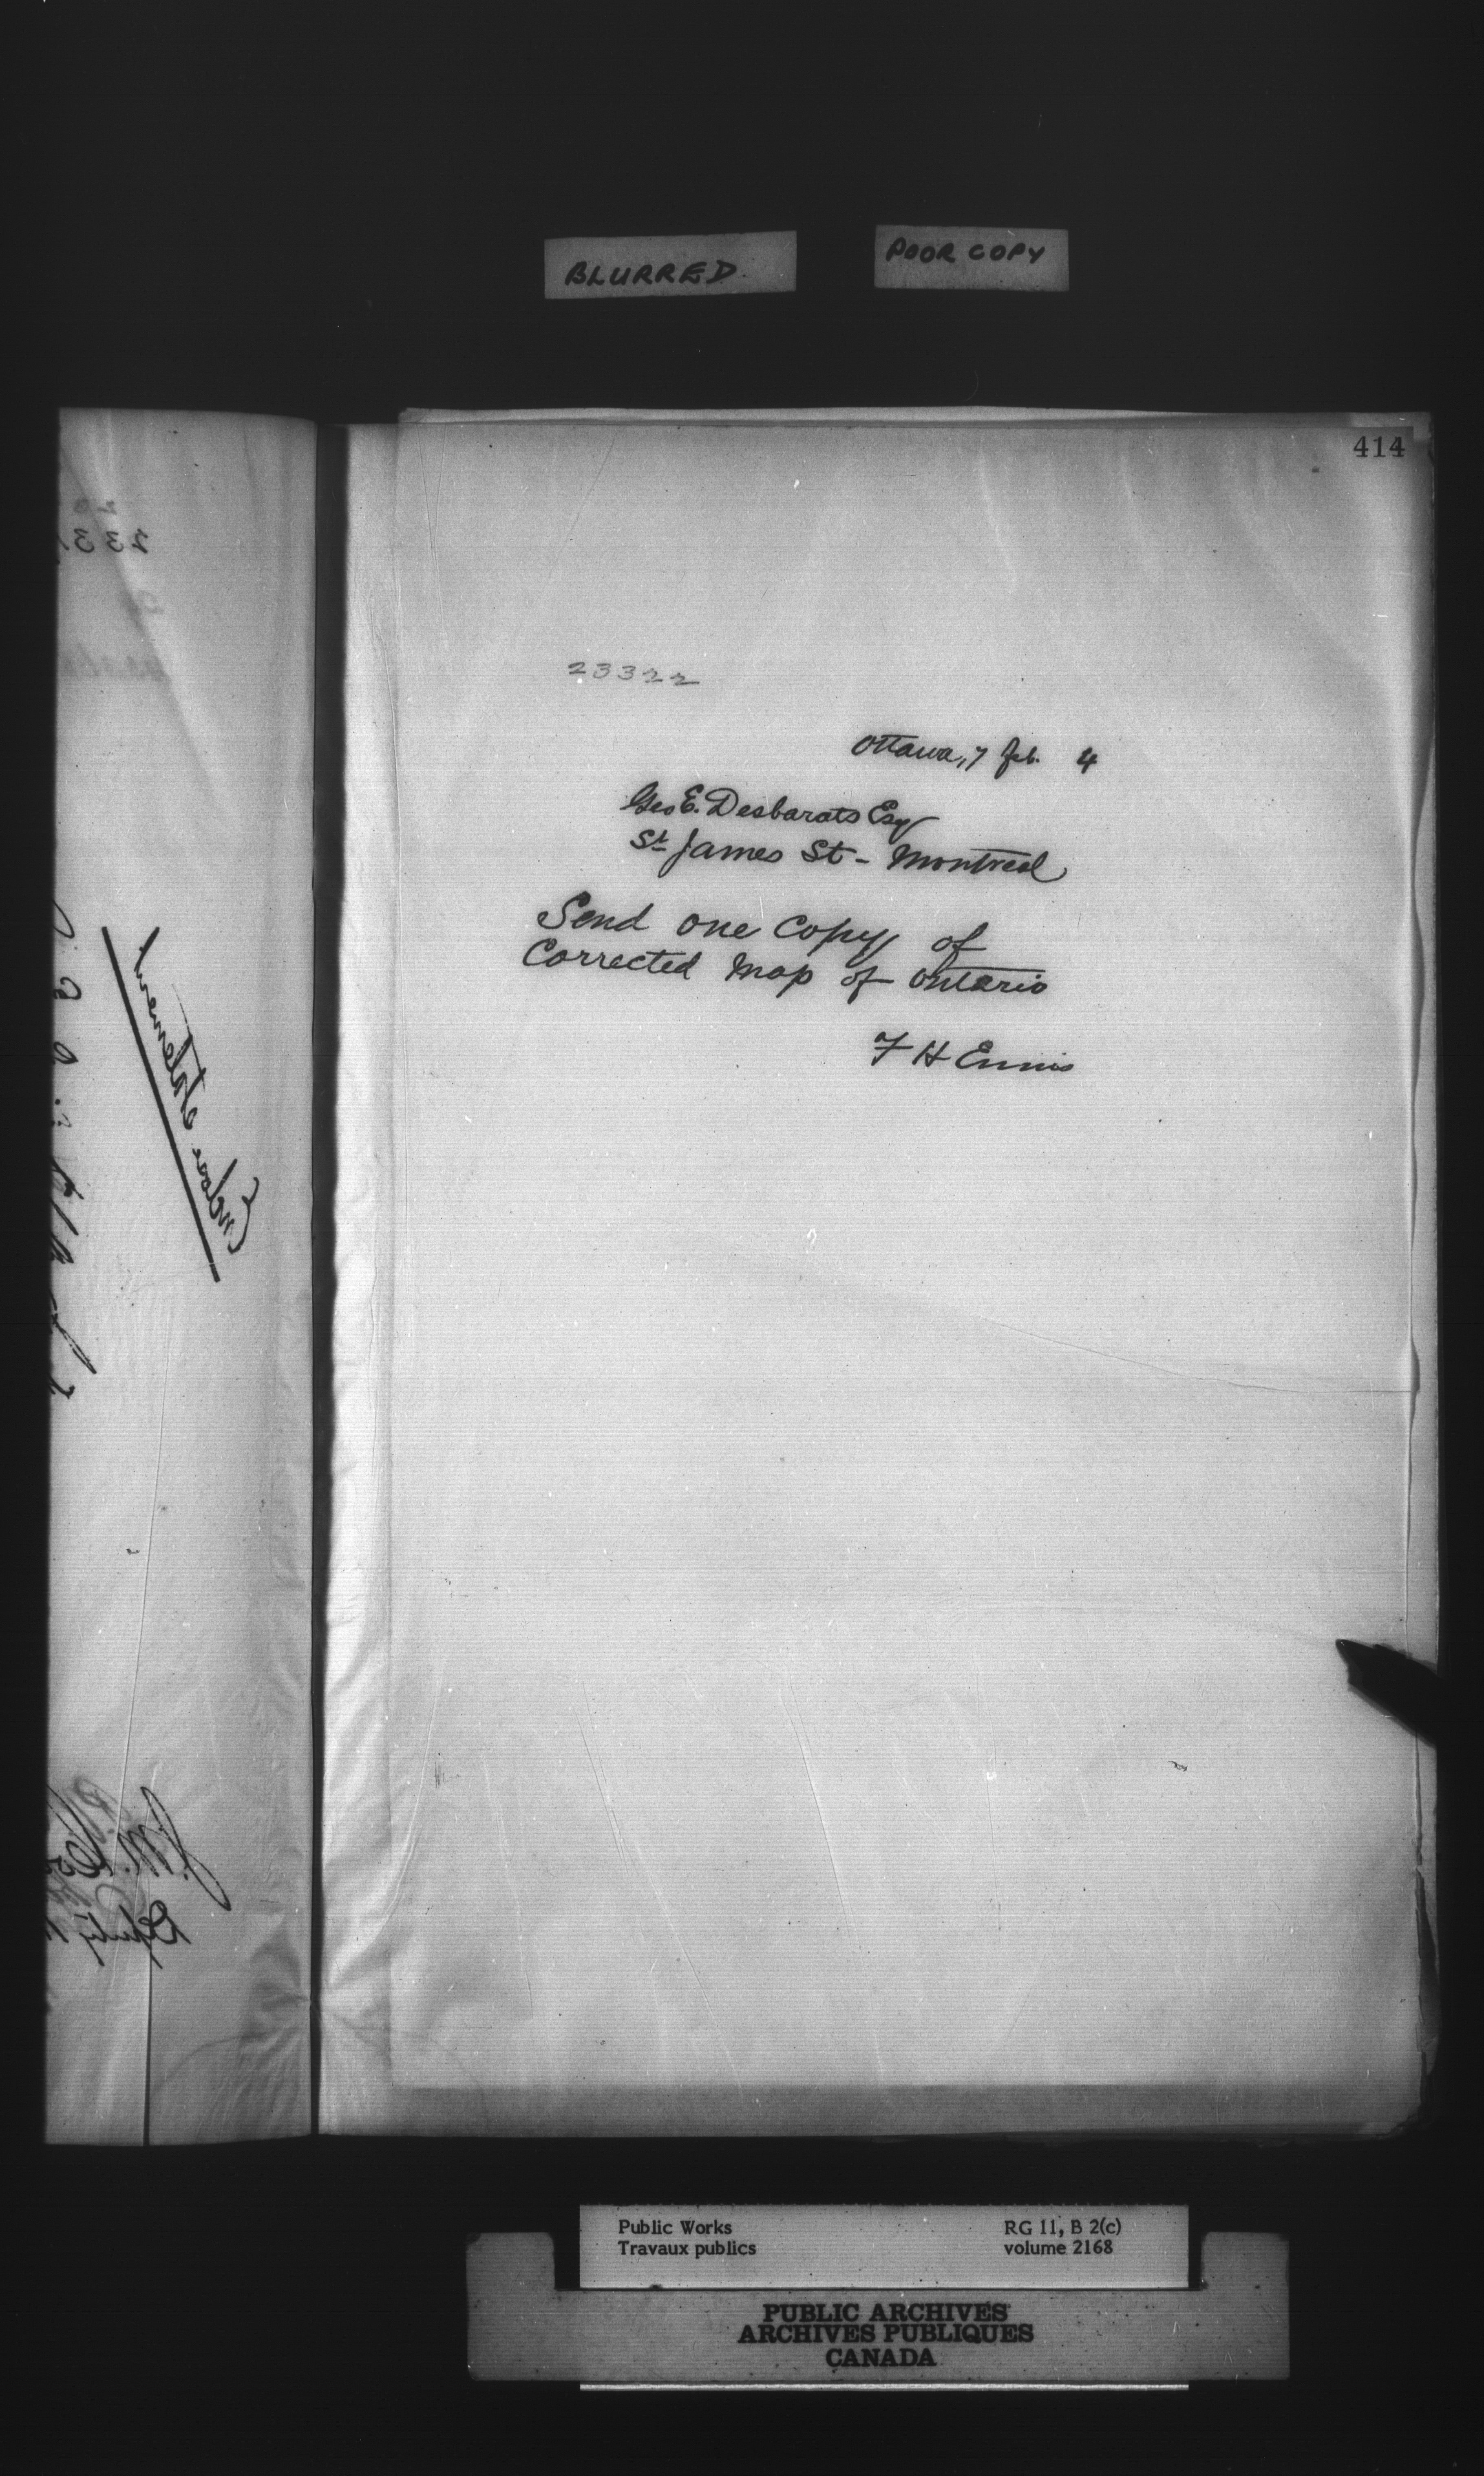 BLURRED.
POOR COPY
414
23322
Ottawa, 7 Feb. 4
Geo E. Desbarats Esq
St James St - Montreal
Send one Copy of
Corrected Map of Ontario
F H Ennis
Enclose Statement
Deputy
Public Works
Travaux publics
RG 11, B 2(c)
volume 2168
PUBLIC ARCHIVES
ARCHIVES PUBLIQUES
CANADA